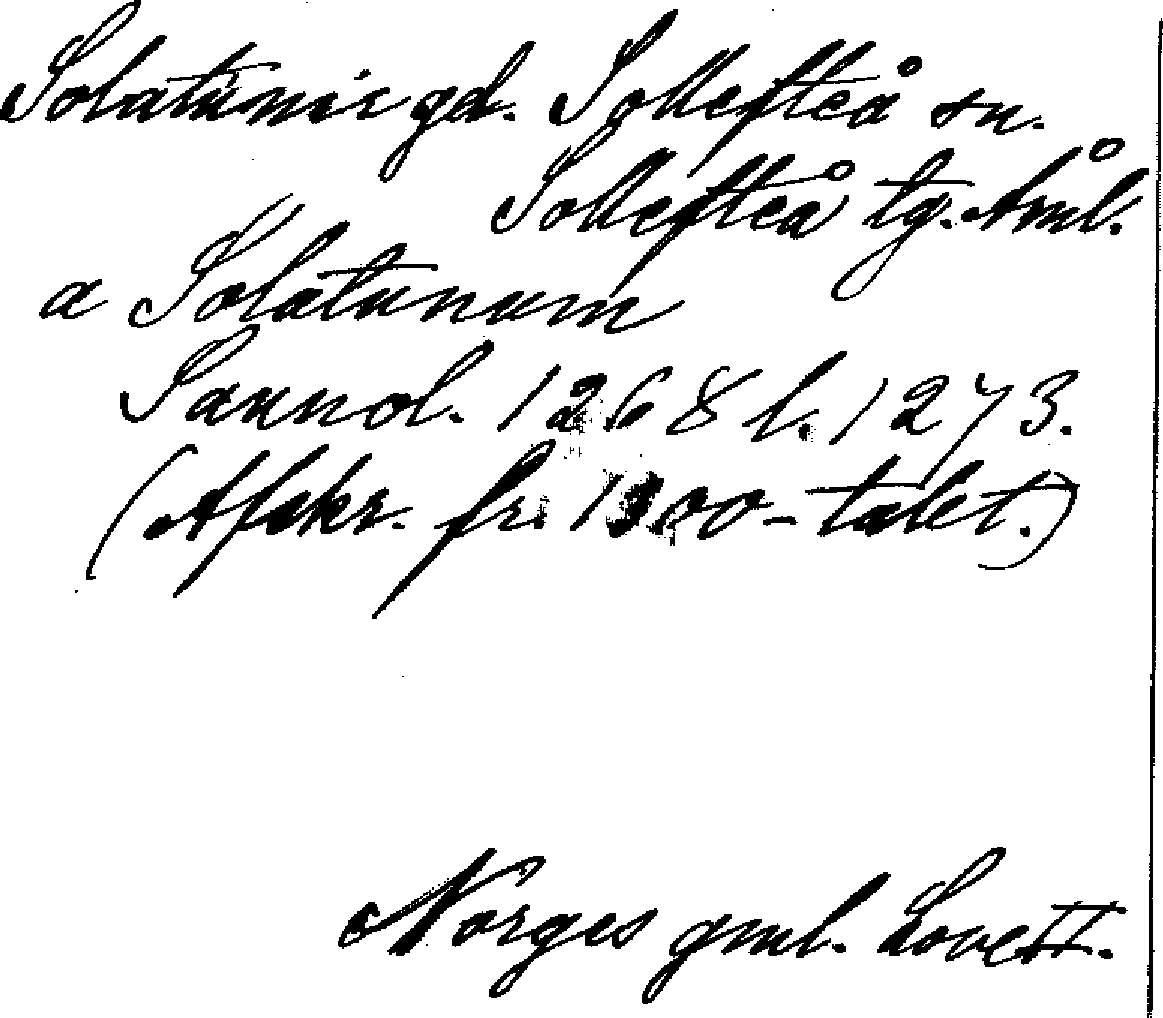 Solatunir gd. Sollefteå sn.
Sollefteå tg. Åml.
a Solatunum
Sannol. 1268 l. 1273.
(Afskr. fr. 1300-talet.)
Norges gml. Love II.